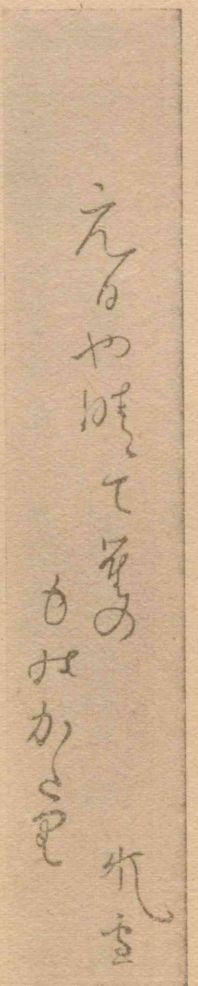 元日や晴て雀の
ものがたり
嵐雪